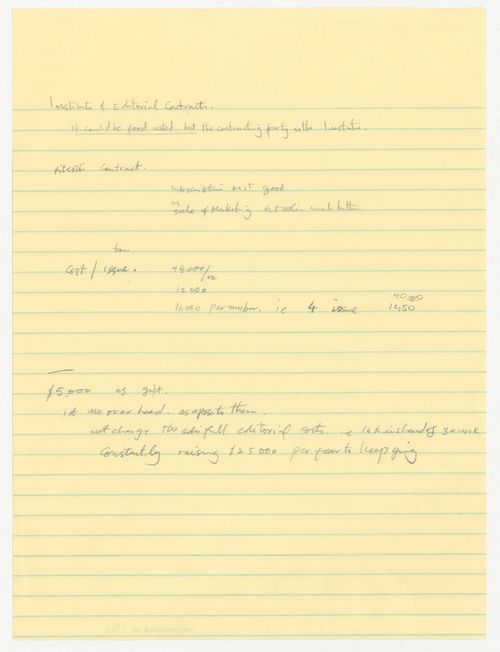 Institute & Editorial Contracts.
it could be good but the contracting party is the Institute.
Contract.
subscription MIT good
Sale & Marketing much better
Cost / issue. 48000/12
12000
16000 per number. ie 4 issue 1250
$5,000 as gift.
1st no over head. as oppose to them.
not change the full editorial costs. ie 16k instead of 30-40k
Constantly raising $25000 per year to keep going